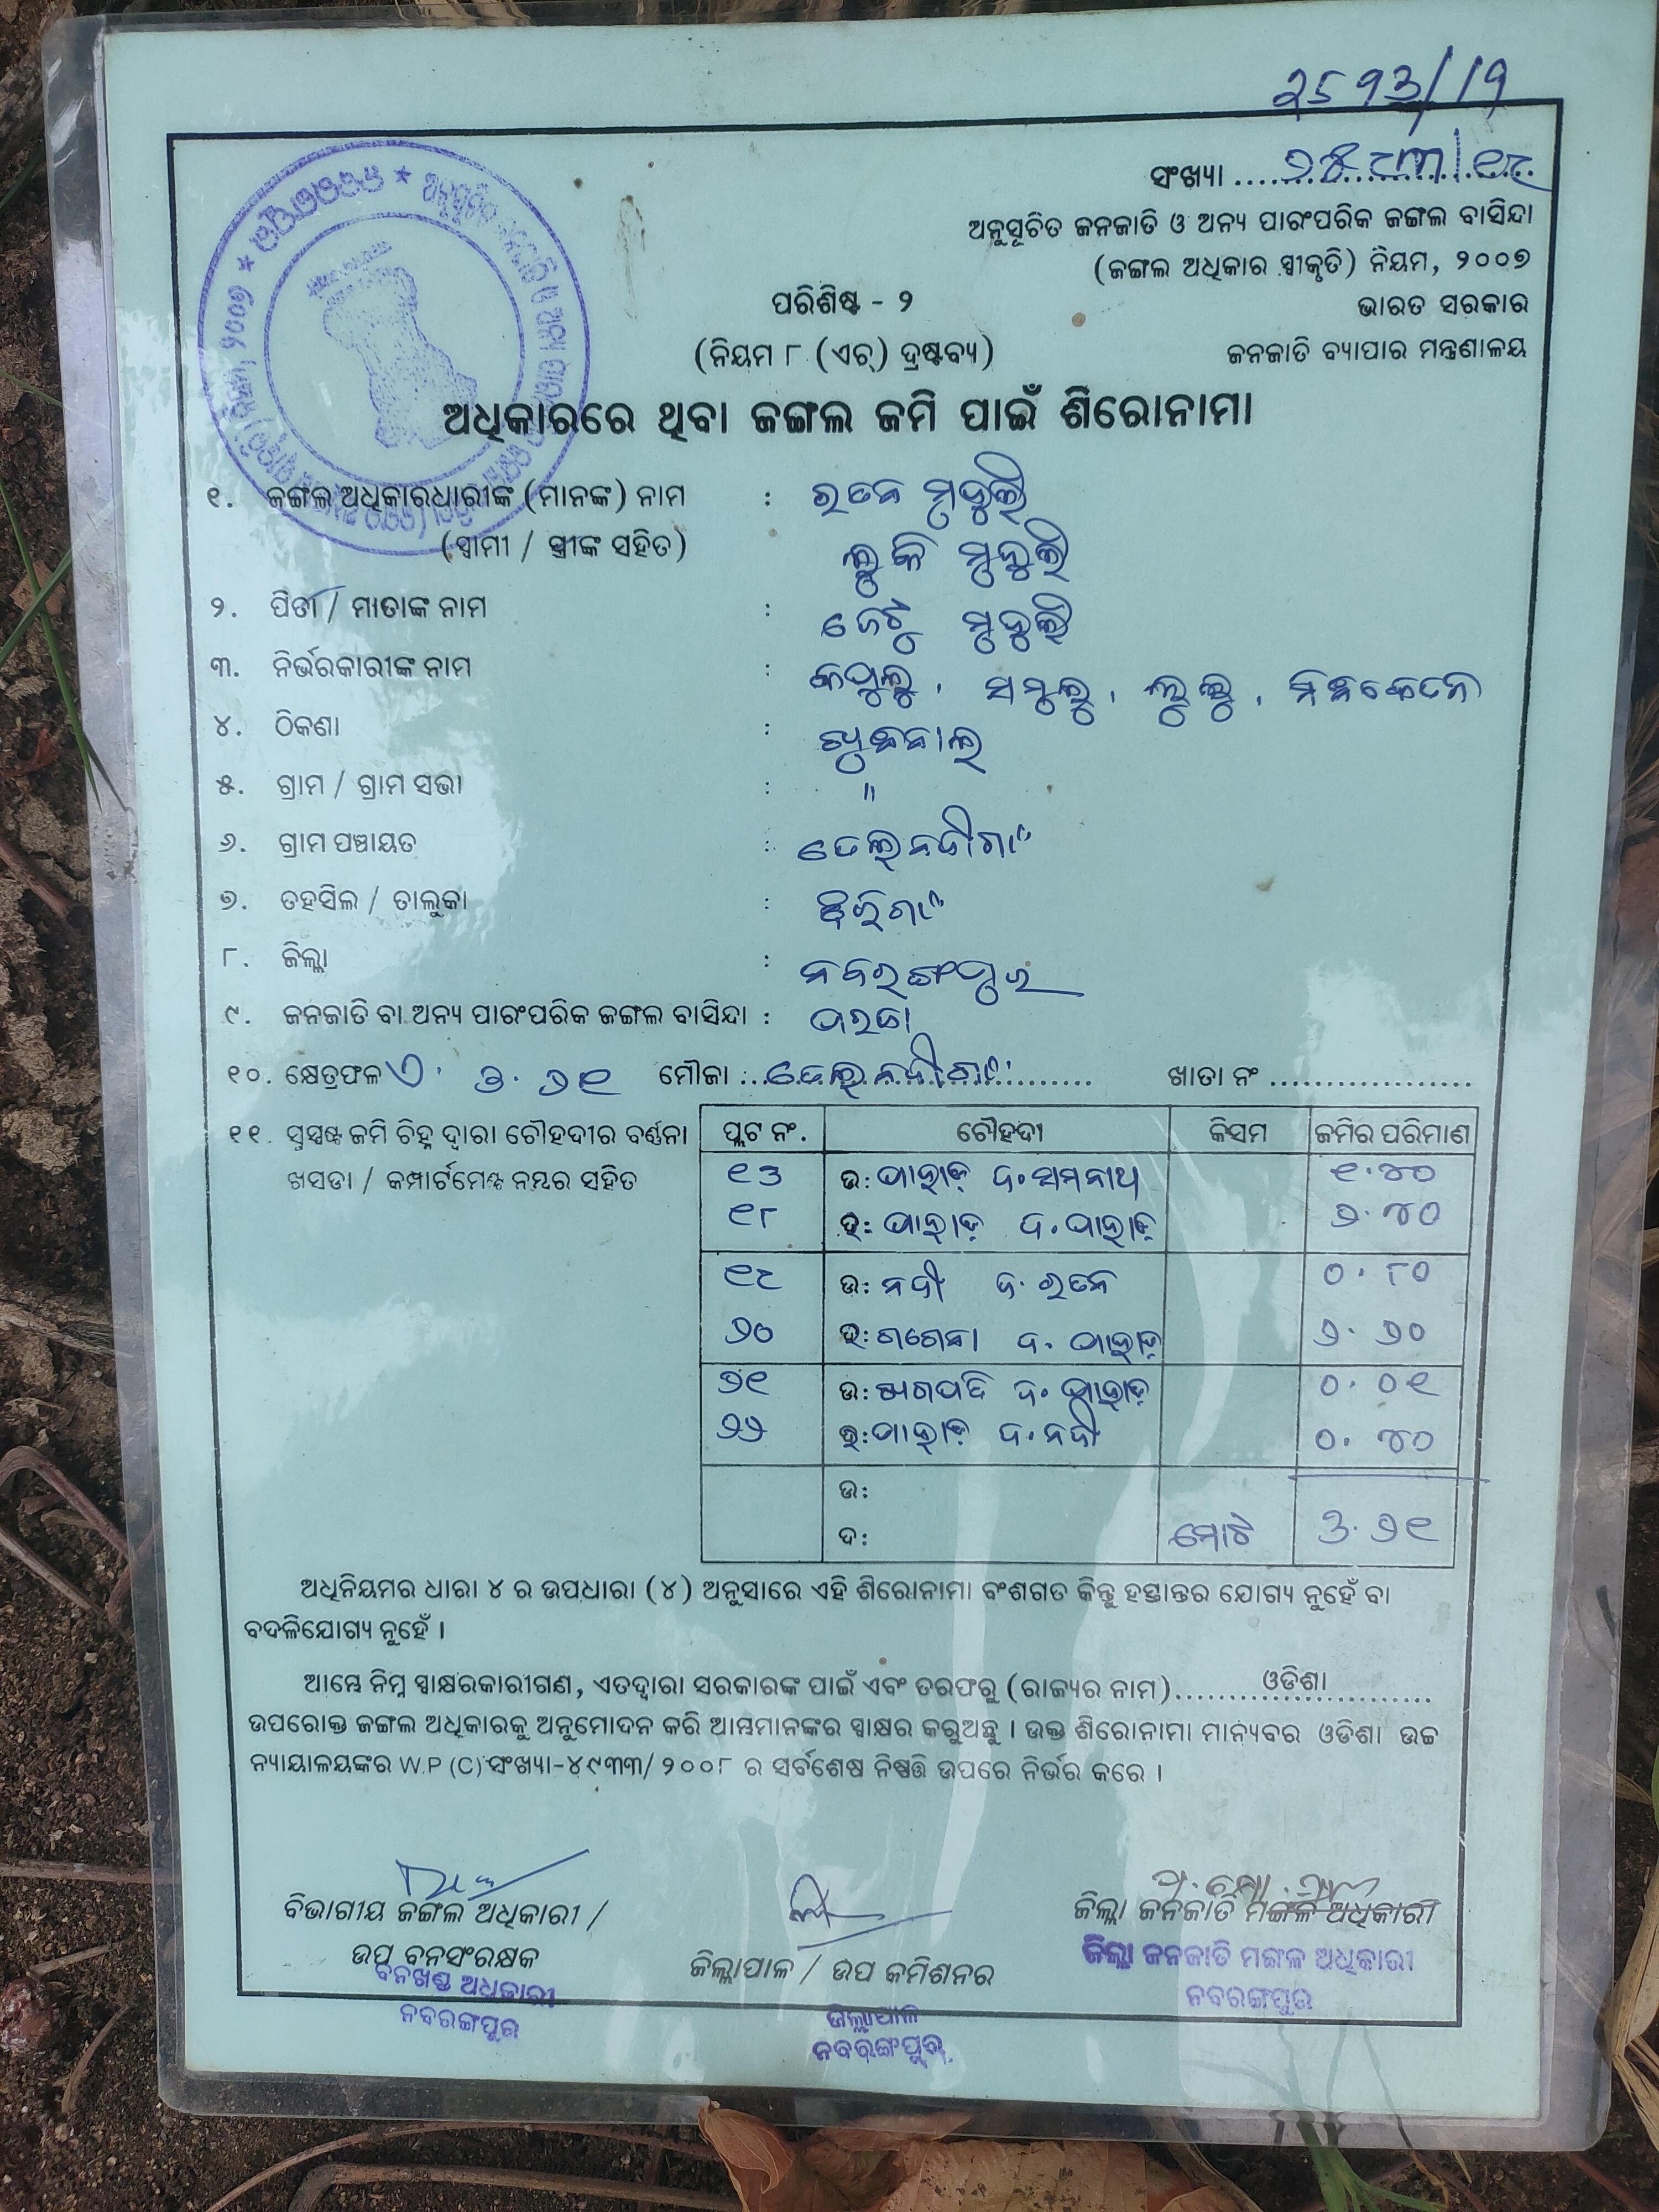 2593/19
ସଂଖ୍ୟା
ଅନୁସୂଚିତ ଜନଜାତି ଓ ଅନ୍ୟ ପାରଂପରିକ ଜଙ୍ଗଲ ବାସିନ୍ଦା
(ଜଙ୍ଗଲ ଅଧିକାର ସ୍ୱୀକୃତି) ନିୟମ, ୨୦୦୭
ପରିଶିଷ୍ଟ - ୨
ଭାରତ ସରକାର
(ନିୟମ ୮ (ଏଚ୍) ଦ୍ରଷ୍ଟବ୍ୟ)
ଜନଜାତି ବ୍ୟାପାର ମନ୍ତ୍ରଣାଳୟ
ଅଧିକାରରେ ଥିବା ଜଙ୍ଗଲ ଜମି ପାଇଁ ଶିରୋନାମା
୧. ଜଙ୍ଗଲ ଅଧିକାରଧାରୀଙ୍କ (ମାନଙ୍କ) ନାମ : ରତନ ମୁଦୁଲି
(ସ୍ୱାମୀ / ସ୍ତ୍ରୀଙ୍କ ସହିତ) ଲୁକି ମୁଦୁଲି
୨. ପିତା / ମାତାଙ୍କ ନାମ : ଜେଟୁ ମୁଦୁଲି
୩. ନିର୍ଭରକାରୀଙ୍କ ନାମ :
୪. ଠିକଣା :
୫. ଗ୍ରାମ / ଗ୍ରାମ ସଭା : "
୬. ଗ୍ରାମ ପଞ୍ଚାୟତ : ତେଲନଦୀଗାଁ
୭. ତହସିଲ / ତାଲୁକା : ଝରିଗାଁ
୮. ଜିଲ୍ଲା : ନବରଙ୍ଗପୁର
୯. ଜନଜାତି ବା ଅନ୍ୟ ପାରଂପରିକ ଜଙ୍ଗଲ ବାସିନ୍ଦା : ପରଜା
୧୦. କ୍ଷେତ୍ରଫଳ ୬.୨୧ ମୌଜା ତେଲନଦୀଗାଁ ଖାତା ନଂ
୧୧. ସୁସ୍ପଷ୍ଟ ଜମି ଚିହ୍ନ ଦ୍ୱାରା ଚୌହଦୀର ବର୍ଣ୍ଣନା
ଖସଡା / କମ୍ପାର୍ଟମେଣ୍ଟ ନମ୍ବର ସହିତ
ପ୍ଲଟ ନଂ. ଚୌହଦୀ କିସମ ଜମିର ପରିମାଣ
୧୬ ଉ: ପାହାଡ଼ ଦ: ୧.୪୦
୧୮ ଦ: ପାହାଡ଼ ଦ. ପାହାଡ଼ ୨.୪୦
୧୯ ଉ: ନଦୀ ଦ. ରତନ ୦.୮୦
୨୦ ଦ: ଦ. ପାହାଡ଼
୨୧ ଉ: ଦ. ପାହାଡ଼ ୦.୦୧
୨୨ ଦ: ପାହାଡ଼ ଦ. ନଦୀ ୦.୪୦
ଉ:
ଦ: ମୋଟ ୬.୨୧
ଅଧିନିୟମର ଧାରା ୪ ର ଉପଧାରା (୪) ଅନୁସାରେ ଏହି ଶିରୋନାମା ବଂଶଗତ କିନ୍ତୁ ହସ୍ତାନ୍ତର ଯୋଗ୍ୟ ନୁହେଁ ବା
ବଦଳିଯୋଗ୍ୟ ନୁହେଁ ।
ଆମ୍ଭେ ନିମ୍ନ ସ୍ୱାକ୍ଷରକାରୀଗଣ, ଏତଦ୍ଦ୍ୱାରା ସରକାରଙ୍କ ପାଇଁ ଏବଂ ତରଫରୁ (ରାଜ୍ୟର ନାମ) ଓଡିଶା
ଉପରୋକ୍ତ ଜଙ୍ଗଲ ଅଧିକାରକୁ ଅନୁମୋଦନ କରି ଆମ୍ଭମାନଙ୍କର ସ୍ୱାକ୍ଷର କରୁଅଛୁ । ଉକ୍ତ ଶିରୋନାମା ମାନ୍ୟବର ଓଡିଶା ଉଚ୍ଚ
ନ୍ୟାୟାଳୟଙ୍କର W.P (C) ସଂଖ୍ୟା-୪୯୩୩/ ୨୦୦୮ ର ସର୍ବଶେଷ ନିଷ୍ପତ୍ତି ଉପରେ ନିର୍ଭର କରେ ।
ବିଭାଗୀୟ ଜଙ୍ଗଲ ଅଧିକାରୀ /
ଉପ ବନସଂରକ୍ଷକ
ବନଖଣ୍ଡ ଅଧିକାରୀ
ନବରଙ୍ଗପୁର
ଜିଲ୍ଲାପାଳ / ଉପ କମିଶନର
ଜିଲ୍ଲାପାଳ
ନବରଙ୍ଗପୁର
ଜିଲ୍ଲା ଜନଜାତି ମଙ୍ଗଳ ଅଧିକାରୀ
ଜିଲ୍ଲା ଜନଜାତି ମଙ୍ଗଳ ଅଧିକାରୀ
ନବରଙ୍ଗପୁର